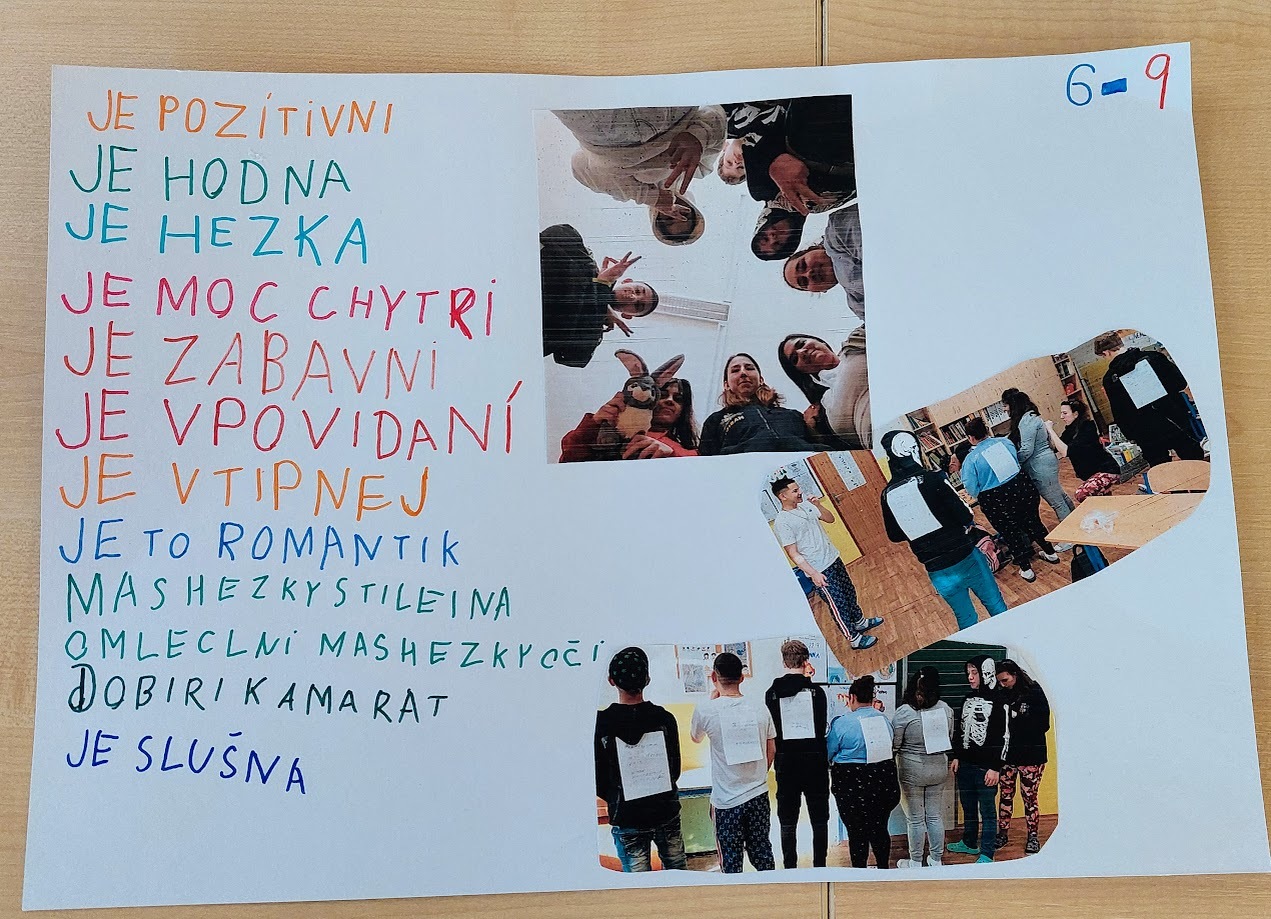 6-9
JE POZÍTIVNI
JE HODNA
JE HEZKA
JE MOC CHYTRI
JE ZABAVNI
JE VPOVIDANÍ
JE VTIPNEJ
JE TO ROMANTIK
MAS HEZKY STILEINA
OMLECLNI MAS HEZKY OČI
DOBIRI KAMARAT
JE SLUŠNA